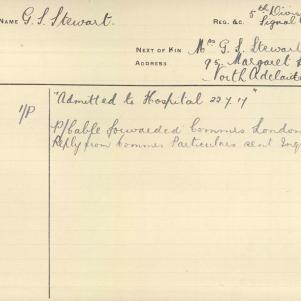 NAME G. S. Stewart.
REG. &C. 5th Divis
Signal
NEXT OF KIN Mrs G. S. Stewart
ADDRESS 95. Margaret
North Adelaid
"Admitted to Hospital 22 7 17"
1/P P/Cable forwarded Commrs London
Reply from Commrs Particulars sent Inq